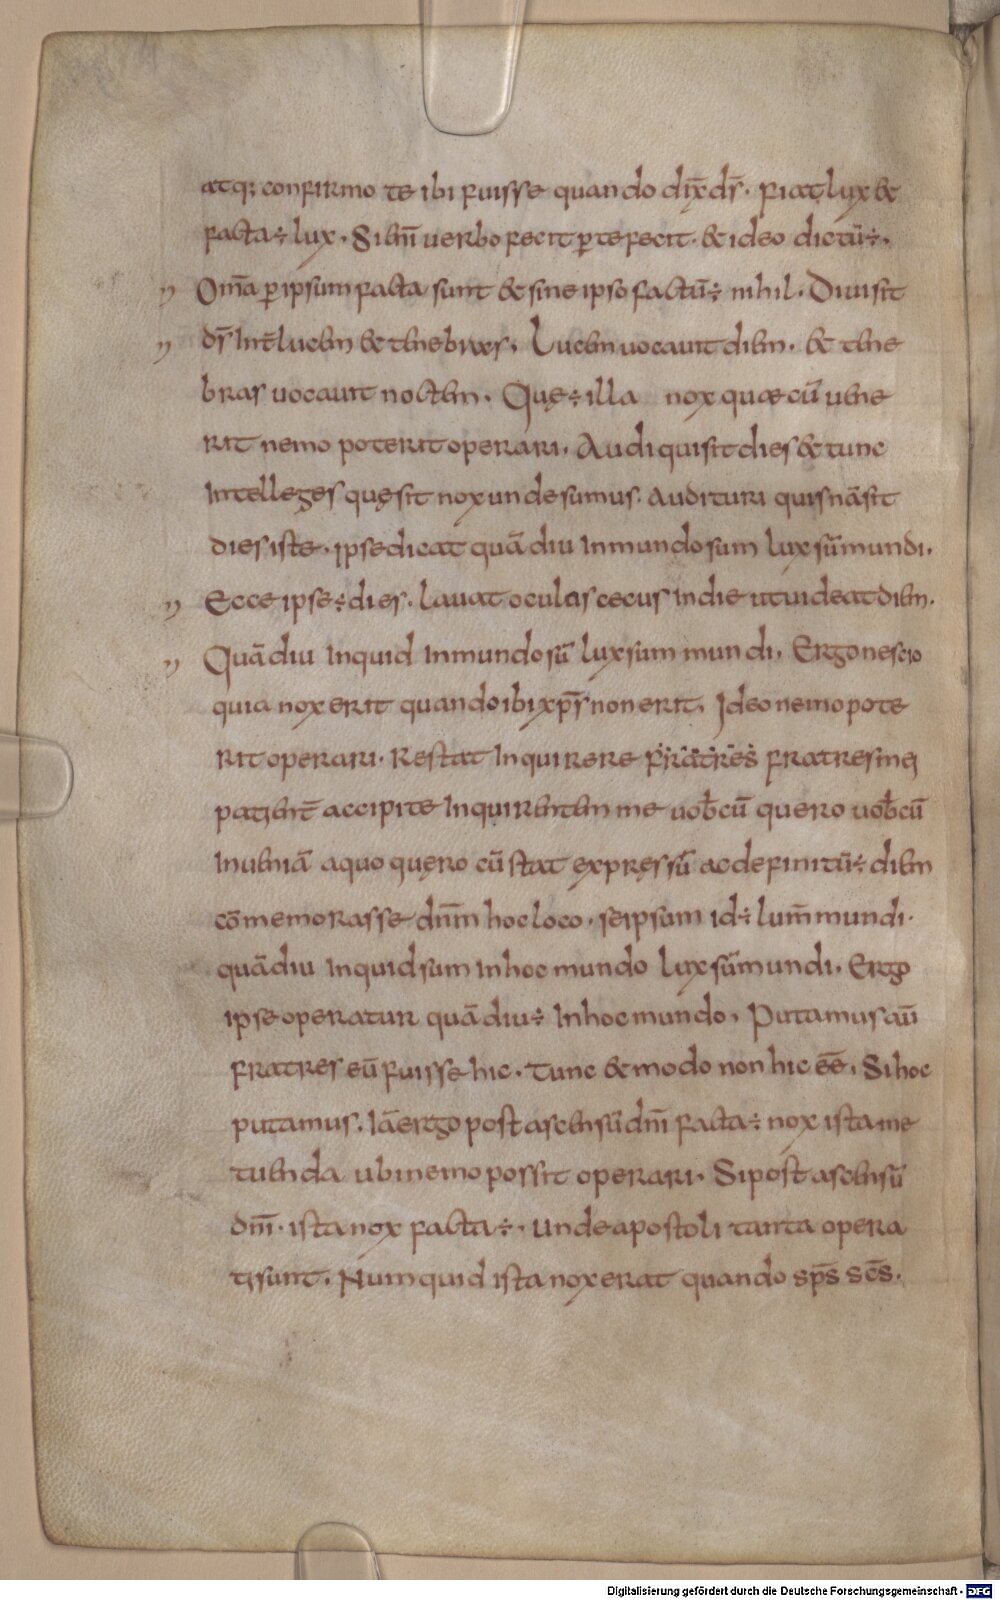 atq; confirmo te ibi fuisse quando dix̄ ds̄. fiat lux &
facta ÷ lux. Si h̄n̄ uerbo fecit p̱ te fecit. & ideo dictū ÷.
Om̄a p̱ ipsum facta sunt & sine ipso factū ÷ nihil. Diuisit
ds̄ int̄ lucem & tenebras. Lucem uocauit diem. & tene
bras uocauit noctem. Quę ÷ illa nox quae cū uene
rit nemo poterit operari. Audi qui sit dies & tunc
intelleges quę sit nox unde sumus. audituri quis nā sit
dies iste. ipse dicat quā diu in mundo sum lux sū mundi.
Ecce ipse ÷ dies. lauat oculis cecus in die ut uideat diem.
Quā diu inquid in mundo sū lux sum mundi. Ergo nescio
quia nox erit quando ibi xp̄s non erit. Ideo nemo pote
rit operari. Restat inquirere fratres fratres mei
patient̄ accipite inquirentem me uob̄cū quero uob̄cū
inueniā a quo quęro cū stat expręssū ac definitū ÷ diem
cōmemorasse dn̄m hoc loco. seipsum id ÷ lum̄ mundi.
quādiu inquid sum in hoc mundo lux sū mundi. Ergo
ipse operatur quā diu ÷ in hoc mundo. Putamus aū
fratres eū fuisse hic. tunc & modo non hic eē. Si hoc
putamus. Iā ergo post ascensū dn̄i facta ÷ nox ista me
tuenda ubi nemo possit operari. Si post ascensū
dn̄i. ista nox facta ÷. unde apostoli tanta opera
ti sunt. Numquid ista nox erat quando sp̄s sc̄s.
Digitalisierung gefördert durch die Deutsche Forschungsgemeinschaft - DFG